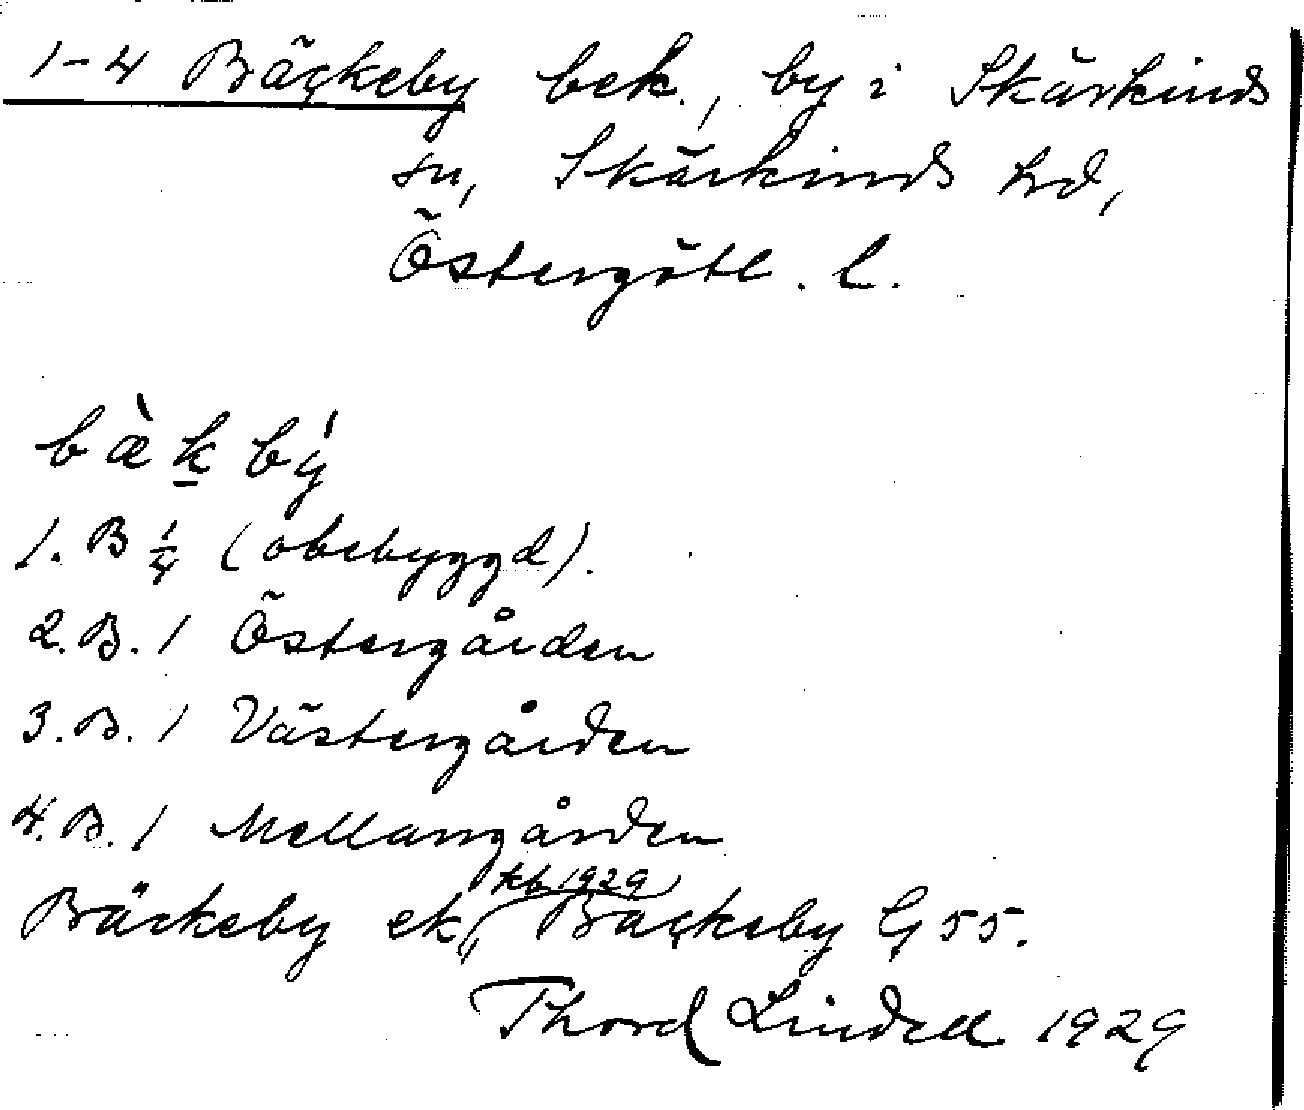 1-4 Bäckeby bek., by i Skärkinds
sn, Skärkinds hd,
Östergötl. l.
bæ̀k bý
1. B ¼ (obebyggd).
2. B. 1 Östergården
3. B. 1 Västergården
4. B. 1 Mellangården
kb 1929
Bäckeby ek, Bäckeby G 55.
Thord Lindell 1929